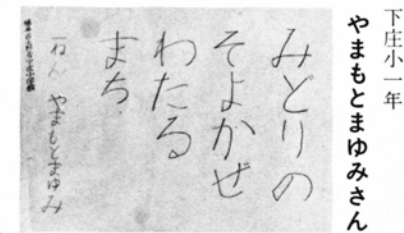 下庄小一年
やまもとまゆみさん
みどりの
そよかぜ
わたる
まち
一ねん やまもとまゆみ